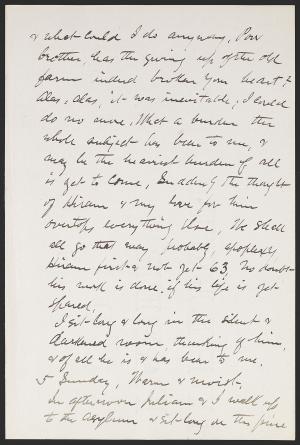 & what could I do anyway. Poor
brother, has the giving up of the old
farm indeed broken your heart?
Alas, alas, it was inevitable; I could
do no more. What a burden the
whole subject has been to me, &
may be the heaviest burden of all
is yet to come. Suddenly the thought
of Hiram & my love for him
overtops everything else. We shall
all go that way probably, apoplexy
Hiram first & not yet 63. No doubt
his work is done, if his life is yet
spared.
I sit long & long in the silent &
darkened room thinking of him,
& of all he is & has been to me.
5 Sunday, Warm & moist.
In afternoon Julian & I walk up
to the asylum & sit long on the pine